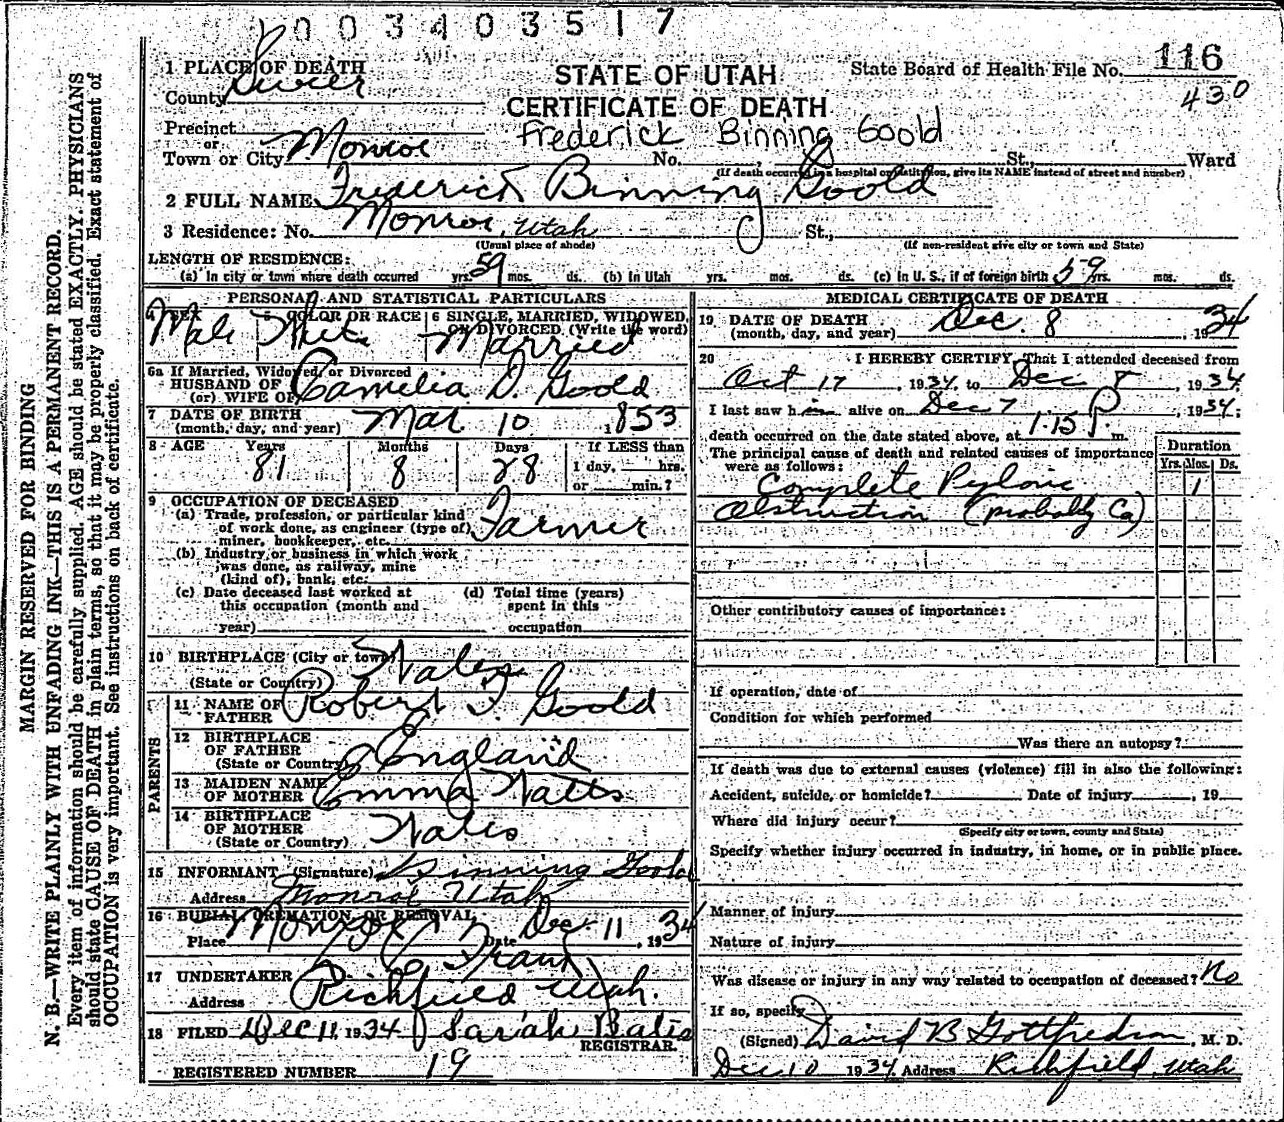 003403517
1 PLACE OF DEATH
STATE OF UTAH
State Board of Health File No. 116
County Sevier
CERTIFICATE OF DEATH
430
Precinct
Frederick Binning Goold
or
Town or City Monroe No. , St., Ward
(If death occurred in a hospital or institution, give its NAME instead of street and number)
2 FULL NAME Frederick Binning Goold
3 Residence: No. Monroe, Utah St.,
(Usual place of abode) (If non-resident give city or town and State)
LENGTH OF RESIDENCE:
(a) In city or town where death occurred yrs. 59 mos. ds. (b) In Utah yrs. mos. ds. (c) In U. S., if of foreign birth 59 yrs. mos. ds.
PERSONAL AND STATISTICAL PARTICULARS
4 SEX 5 COLOR OR RACE 6 SINGLE, MARRIED, WIDOWED, OR DIVORCED (Write the word)
Male White Married
6a If Married, Widowed, or Divorced
HUSBAND OF Camelia D. Goold
(or) WIFE OF
7 DATE OF BIRTH Mar 10 1853
(month, day, and year)
8 AGE Years Months Days If LESS than
81 8 28 1 day, hrs.
or min.?
9 OCCUPATION OF DECEASED
(a) Trade, profession, or particular kind
of work done, as engineer (type of) Farmer
miner, bookkeeper, etc.
(b) Industry or business in which work
was done, as railway, mine
(kind of), bank, etc.
(c) Date deceased last worked at (d) Total time (years)
this occupation (month and spent in this
year) occupation
10 BIRTHPLACE (City or town) Wales
(State or Country)
PARENTS
11 NAME OF Robert T. Goold
FATHER
12 BIRTHPLACE
OF FATHER England
(State or Country)
13 MAIDEN NAME
OF MOTHER Emma Watts
14 BIRTHPLACE
OF MOTHER Wales
(State or Country)
15 INFORMANT (Signature) Binning Goold
Address Monroe Utah
16 BURIAL, CREMATION, OR REMOVAL
Place Monroe Date Dec. 11, 1934
17 UNDERTAKER
Address Richfield Utah.
18 FILED Dec 11, 1934 Sarah Bates
REGISTRAR.
REGISTERED NUMBER 19
MEDICAL CERTIFICATE OF DEATH
19 DATE OF DEATH Dec. 8, 1934
(month, day, and year)
20 I HEREBY CERTIFY, That I attended deceased from
Oct 17, 1934, to Dec 8, 1934.
I last saw him alive on Dec 7, 1934;
death occurred on the date stated above, at 1.15 P. m.
Duration
The principal cause of death and related causes of importance
were as follows: Yrs. Mos. Ds.
Complete Pyloric 1
Obstruction (probably Ca)
Other contributory causes of importance:
If operation, date of
Condition for which performed
Was there an autopsy?
If death was due to external causes (violence) fill in also the following:
Accident, suicide, or homicide? Date of injury , 19
Where did injury occur?
(Specify city or town, county and State)
Specify whether injury occurred in industry, in home, or in public place.
Manner of injury
Nature of injury
Was disease or injury in any way related to occupation of deceased? No
If so, specify
(Signed) David B Gottfredson, M. D.
Dec 10 1934, Address Richfield, Utah
MARGIN RESERVED FOR BINDING
N. B.—WRITE PLAINLY WITH UNFADING INK—THIS IS A PERMANENT RECORD.
Every item of information should be carefully supplied. AGE should be stated EXACTLY. PHYSICIANS
should state CAUSE OF DEATH in plain terms, so that it may be properly classified. Exact statement of
OCCUPATION is very important. See instructions on back of certificate.